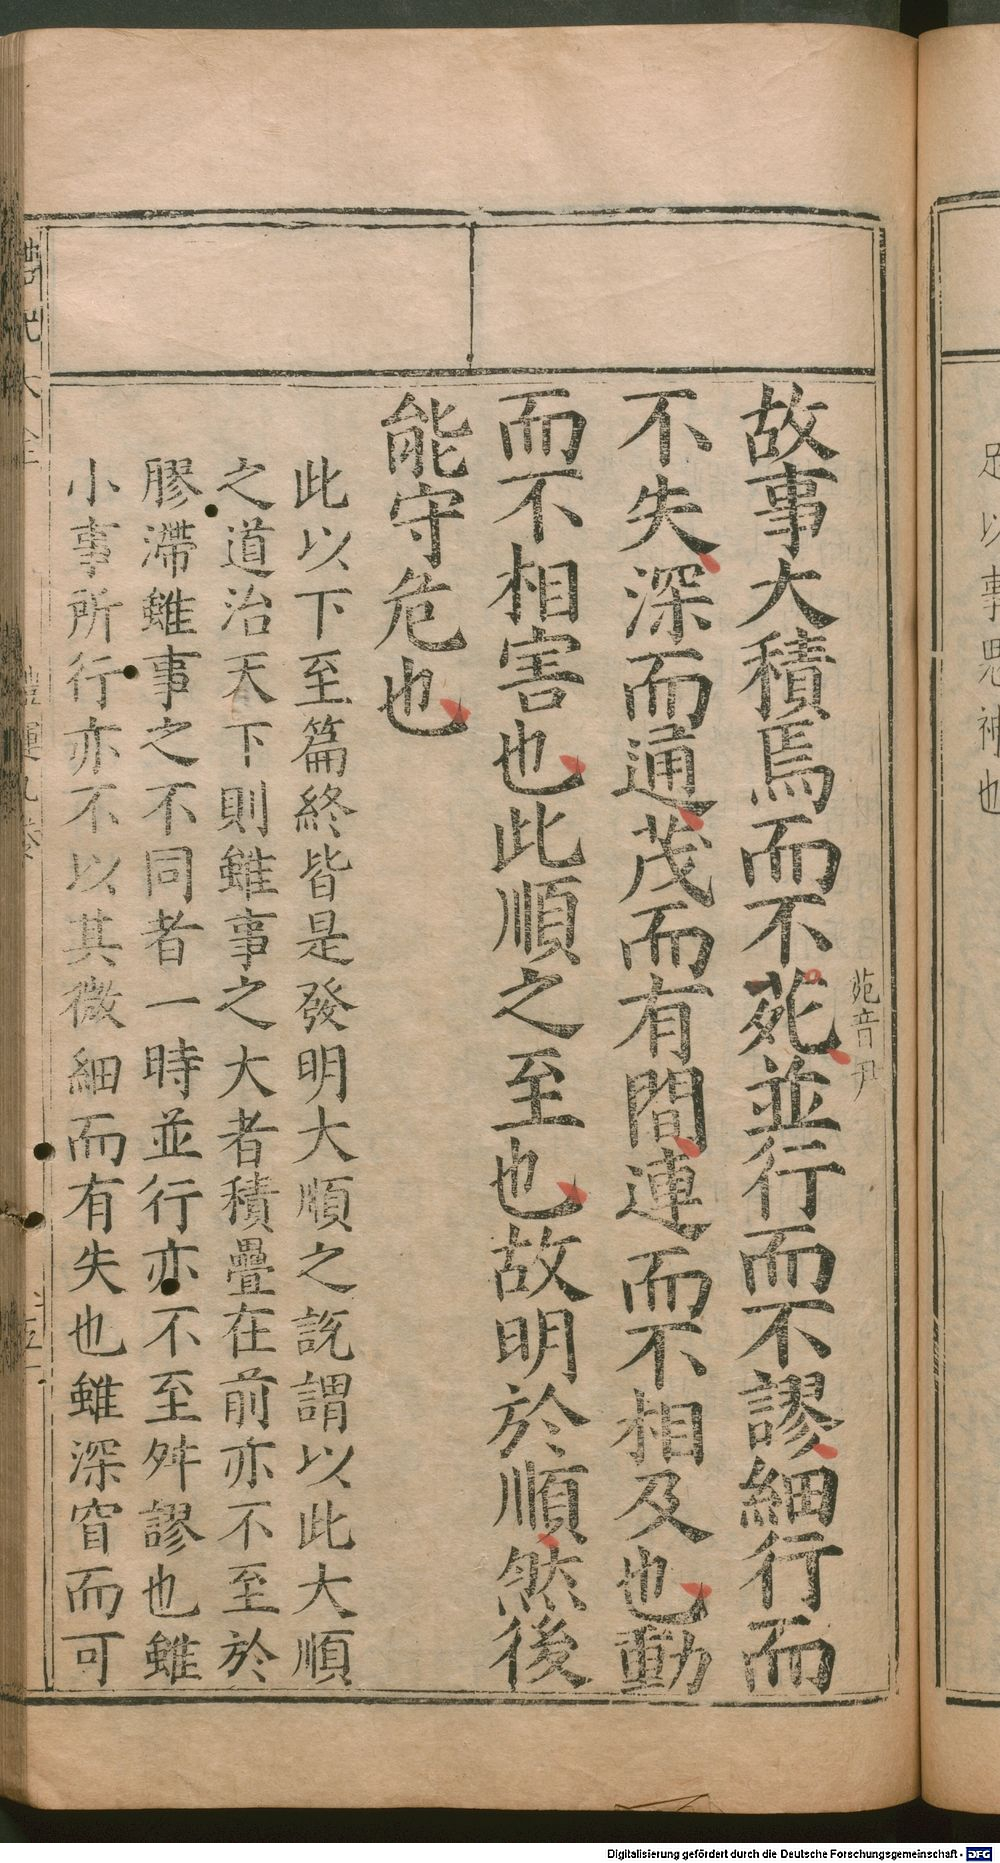 足以事鬼神也
苑音尹
故事大積焉而不苑並行而不謬細行而
不失深而通茂而有間連而不相及也動
而不相害也此順之至也故明於順然後
能守危也
此以下至篇終皆是發明大順之說謂以此大順
之道治天下則雖事之大者積疊在前亦不至於
膠滯雖事之不同者一時並行亦不至舛謬也雖
小事所行亦不以其微細而有失也雖深窅而可
Digitalisierung gefördert durch die Deutsche Forschungsgemeinschaft - DFG